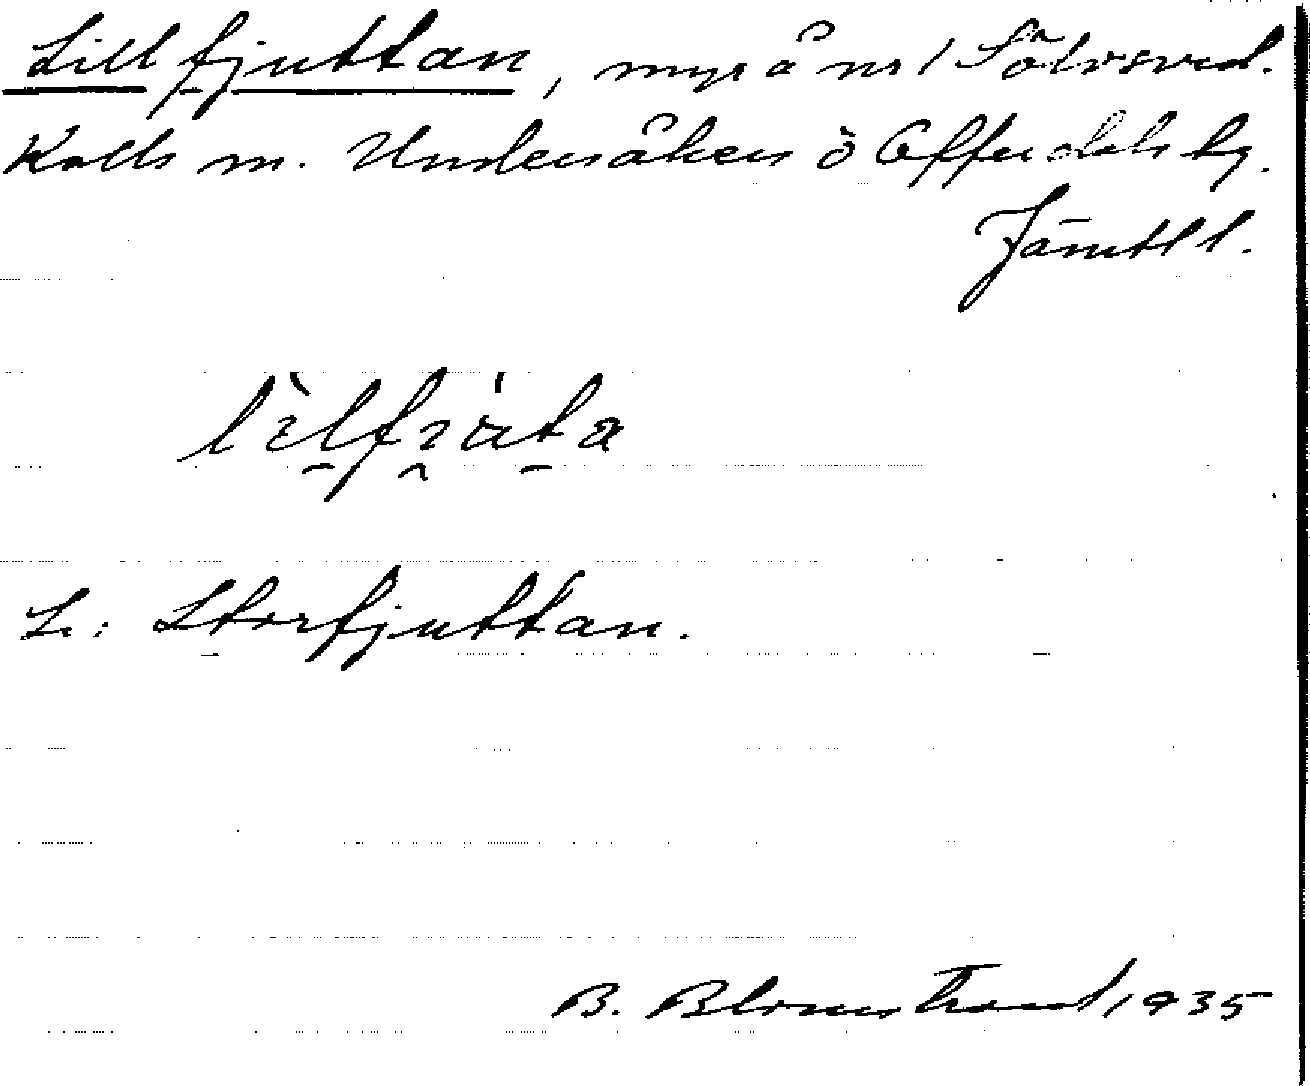 Lillfjuttan, myr å nr 1 Sölvsved.
Kalls sn. Undersåkers o Offerdals tg.
Jämtl l.
L: Storfjuttan.
B. Blomstrand 1935